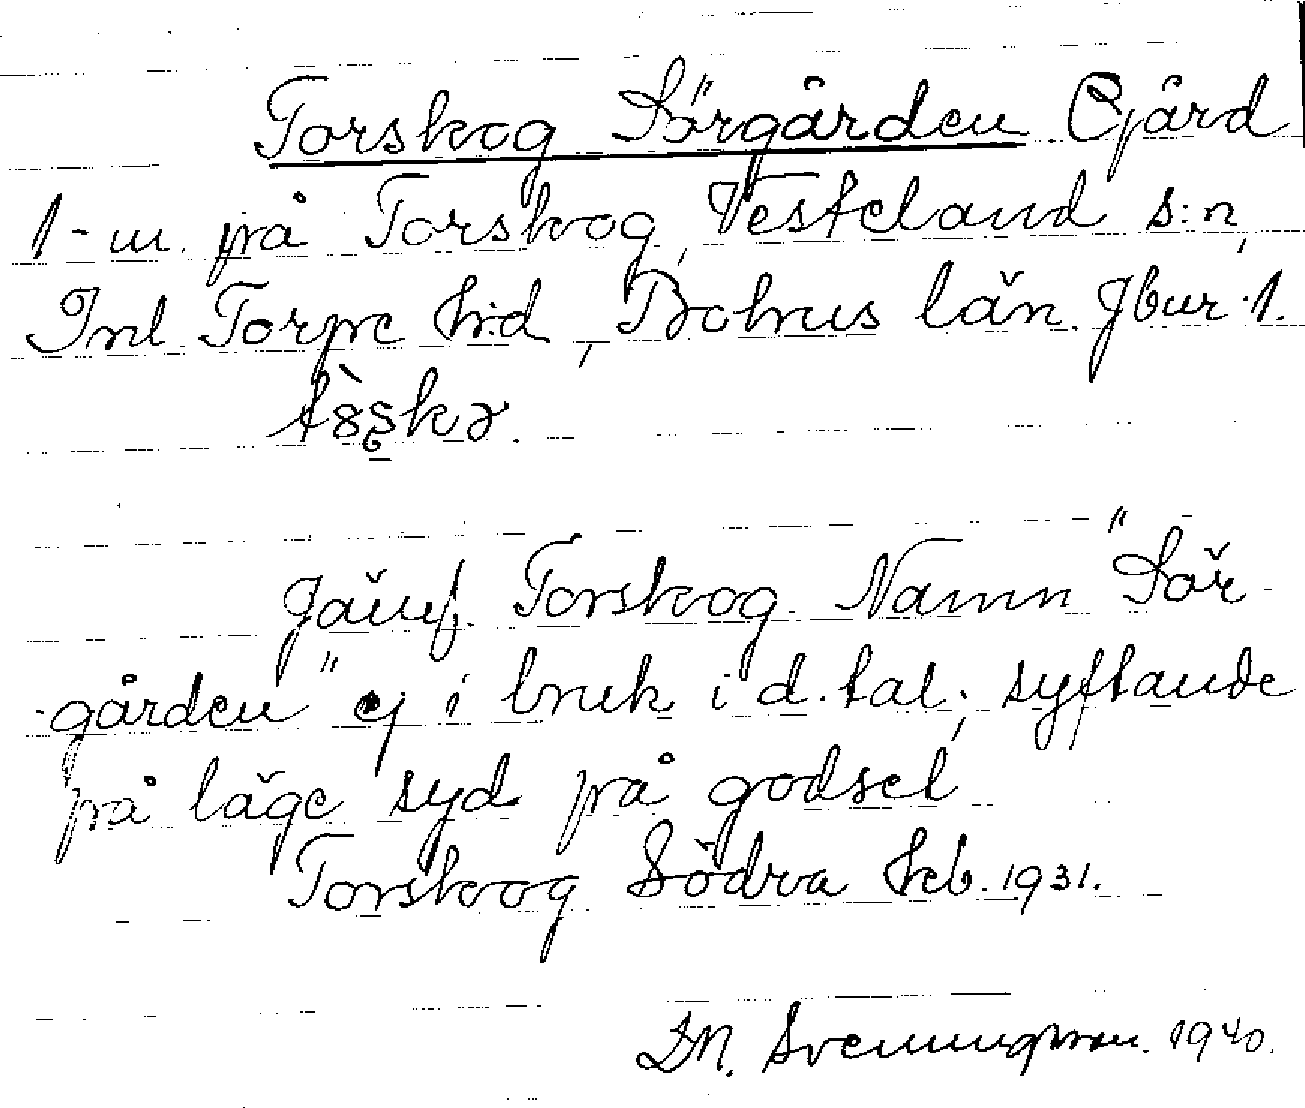 Torskog Sörgården Gård
1-m. på Torskog, Vesteland s:n,
Inl Torpe hd, Bohus län. Jbnr 1.
Jämf. Torskog. Namn "Sör-
-gården" ej i bruk i d. tal; syftande
på läge syd på godset
Torskog Södra kb. 1931.
D.N. Svenningsson. 1940.